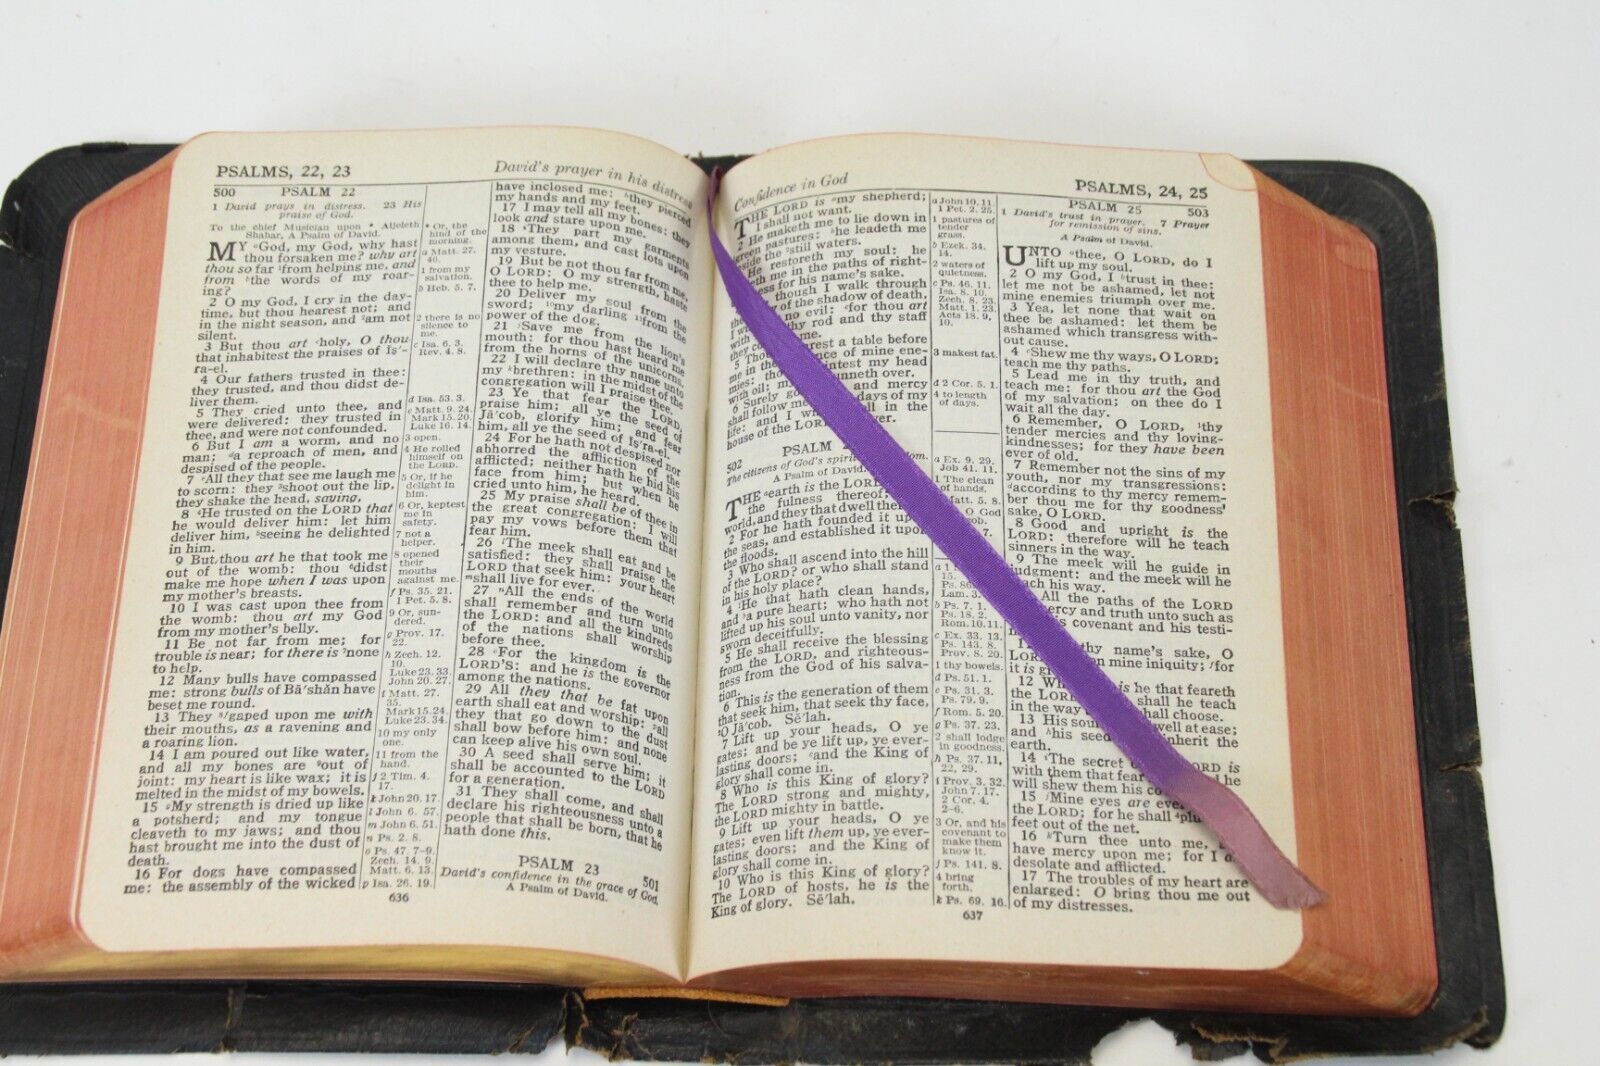 PSALMS, 22, 23
David's prayer in his distress
500 PSALM 22
1 David prays in distress. 23 His
praise of God.
To the chief Musician upon * Aijeleth
Shahar, A Psalm of David.
MY ᵃGod, my God, why hast
thou forsaken me? why art
thou so far ¹from helping me, and
from ᵇthe words of my roar-
ing?
2 O my God, I cry in the day-
time, but thou hearest not; and
in the night season, and ²am not
silent.
3 But thou art ᶜholy, O thou
that inhabitest the praises of Iş'-
ra-el.
4 Our fathers trusted in thee:
they trusted, and thou didst de-
liver them.
5 They cried unto thee, and
were delivered: they trusted in
thee, and were not confounded.
6 But I am a worm, and no
man; ᵈa reproach of men, and
despised of the people.
7 ᵉAll they that see me laugh me
to scorn: they ³shoot out the lip,
they shake the head, saying,
8 ⁴He trusted on the LORD that
he would deliver him: let him
deliver him, ⁵seeing he delighted
in him.
9 But thou art he that took me
out of the womb: thou ⁶didst
make me hope when I was upon
my mother's breasts.
10 I was cast upon thee from
the womb: thou art my God
from my mother's belly.
11 Be not far from me; for
trouble is near; for there is ⁷none
to help.
12 Many bulls have compassed
me: strong bulls of Bā'shăn have
beset me round.
13 They ⁸ᶠgaped upon me with
their mouths, as a ravening and
a roaring lion.
14 I am poured out like water,
and all my bones are ⁹out of
joint: my heart is like wax; it is
melted in the midst of my bowels.
15 ᵍMy strength is dried up like
a potsherd; and my tongue
cleaveth to my jaws; and thou
hast brought me into the dust of
death.
16 For dogs have compassed
me: the assembly of the wicked
* Or, the
hind of the
morning.
a Matt. 27.
46.
1 from my
salvation.
b Heb. 5. 7.
2 there is no
silence to
me.
c Isa. 6. 3.
Rev. 4. 8.
d Isa. 53. 3.
e Matt. 9. 24.
Mark 15. 20.
Luke 16. 14.
3 open.
4 He rolled
himself on
the LORD.
5 Or, if he
delight in
him.
6 Or, keptest
me in
safety.
7 not a
helper.
8 opened
their
mouths
against me.
f Ps. 35. 21.
1 Pet. 5. 8.
9 Or, sun-
dered.
g Prov. 17.
22.
h Zech. 12.
10.
Luke 23. 33.
John 20. 27.
i Matt. 27.
35.
Mark 15.24.
Luke 23. 34.
10 my only
one.
11 from the
hand.
j 2 Tim. 4.
17.
k John 20. 17.
l John 6. 57.
m John 6. 51.
n Ps. 2. 8.
o Ps. 47. 7-9.
Zech. 14. 9.
Matt. 6. 13.
p Isa. 26. 19.
have inclosed me: ʰthey pierced
my hands and my feet.
17 I may tell all my bones: they
look and stare upon me.
18 ⁱThey part my garments
among them, and cast lots upon
my vesture.
19 But be not thou far from me,
O LORD: O my strength, haste
thee to help me.
20 Deliver my soul from the
sword; ¹⁰my darling ¹¹from the
power of the dog.
21 ʲSave me from the lion's
mouth: for thou hast heard me
from the horns of the unicorns.
22 I will declare thy name unto
my ᵏbrethren: in the midst of the
congregation will I praise thee.
23 Ye that fear the LORD,
praise him; all ye the seed of
Jā'cob, glorify him; and fear
him, all ye the seed of Iş'ra-el.
24 For he hath not despised nor
abhorred the affliction of the
afflicted; neither hath he hid his
face from him; but when he
cried unto him, he heard.
25 My praise shall be of thee in
the great congregation: I will
pay my vows before them that
fear him.
26 ˡThe meek shall eat and be
satisfied: they shall praise the
LORD that seek him: your heart
ᵐshall live for ever.
27 ⁿAll the ends of the world
shall remember and turn unto
the LORD: and all the kindreds
of the nations shall worship
before thee.
28 ᵒFor the kingdom is the
LORD'S: and he is the governor
among the nations.
29 All they that be fat upon
earth shall eat and worship: ᵖall
they that go down to the dust
shall bow before him: and none
can keep alive his own soul.
30 A seed shall serve him; it
shall be accounted to the LORD
for a generation.
31 They shall come, and shall
declare his righteousness unto a
people that shall be born, that he
hath done this.
PSALM 23 501
David's confidence in the grace of God.
A Psalm of David.
636
Confidence in God
PSALMS, 24, 25
THE LORD is ᵃmy shepherd;
I shall not want.
2 He maketh me to lie down in
green pastures: ᵇhe leadeth me
the ²still waters.
He restoreth my soul: he
me in the paths of right-
for his name's sake.
though I walk through
of the shadow of death,
no evil: ᶜfor thou art
thy rod and thy staff
they
5 a table before
me in of mine ene-
mies: my head
with oil; runneth over.
6 Surely and mercy
shall follow me days of my
life: and I in the
house of the LORD
502 PSALM
The citizens of God's
A Psalm of David.
THE ᵃearth is the LORD
the fulness thereof;
world, and they that dwell
2 For he hath founded it upon
the seas, and established it upon
the floods.
3 Who shall ascend into the hill
of the LORD? or who shall stand
in his holy place?
4 ¹He that hath clean hands,
and ᵃa pure heart; who hath not
lifted up his soul unto vanity, nor
sworn deceitfully.
5 He shall receive the blessing
from the LORD, and righteous-
ness from the God of his salva-
tion.
6 This is the generation of them
that seek him, that seek thy face,
O Jā'cob. Sē'lah.
7 Lift up your heads, O ye
gates; and be ye lift up, ye ever-
lasting doors; ᶜand the King of
glory shall come in.
8 Who is this King of glory?
The LORD strong and mighty,
the LORD mighty in battle.
9 Lift up your heads, O ye
gates; even lift them up, ye ever-
lasting doors; and the King of
glory shall come in.
10 Who is this King of glory?
The LORD of hosts, he is the
King of glory. Sē'lah.
a John 10. 11.
1 Pet. 2. 25.
1 pastures of
tender
grass.
b Ezek. 34.
14.
2 waters of
quietness.
c Ps. 46. 11.
Isa. 8. 10.
Zech. 8. 23.
Matt. 1. 23.
Acts 18. 9,
10.
3 makest fat.
d 2 Cor. 5. 1.
4 to length
of days.
a Ex. 9. 29.
Job 41. 11.
1 The clean
of hands.
Matt. 5. 8.
O God
a 1
15.
Ps. 86.
Lam. 3.
b Ps. 7. 1.
Ps. 18. 2.
Rom. 10. 11.
c Ex. 33. 13.
Ps. 143. 8.
Prov. 8. 20.
1 thy bowels.
d Ps. 51. 1.
e Ps. 31. 3.
Ps. 79. 9.
f Rom. 5. 20.
g Ps. 37. 23.
2 shall lodge
in goodness.
h Ps. 37. 11,
22, 29.
i Prov. 3. 32.
John 7. 17.
2 Cor. 4.
2-6.
3 Or, and his
covenant to
make them
know it.
j Ps. 141. 8.
4 bring
forth.
k Ps. 69. 16.
PSALM 25 503
1 David's trust in prayer. 7 Prayer
for remission of sins.
A Psalm of David.
UNTO ᵃthee, O LORD, do I
lift up my soul.
2 O my God, I ᵇtrust in thee:
let me not be ashamed, let not
mine enemies triumph over me.
3 Yea, let none that wait on
thee be ashamed: let them be
ashamed which transgress with-
out cause.
4 ᶜShew me thy ways, O LORD;
teach me thy paths.
5 Lead me in thy truth, and
teach me: for thou art the God
of my salvation; on thee do I
wait all the day.
6 Remember, O LORD, ¹thy
tender mercies and thy loving-
kindnesses; for they have been
ever of old.
7 Remember not the sins of my
youth, nor my transgressions:
ᵈaccording to thy mercy remem-
ber thou me for thy goodness'
sake, O LORD.
8 Good and upright is the
LORD: therefore will he teach
sinners in the way.
9 The meek will he guide in
judgment: and the meek will he
teach his way.
All the paths of the LORD
mercy and truth unto such as
his covenant and his testi-
thy name's sake, O
LORD mine iniquity; ᶠfor
it is
12 is he that feareth
the LORD shall he teach
in the way shall choose.
13 His soul well at ease;
and ʰhis seed inherit the
earth.
14 ⁱThe secret LORD is
with them that fear he
will shew them his
15 Mine eyes are
the LORD; for he shall ⁴
feet out of the net.
16 ᵏTurn thee unto me,
have mercy upon me; for I
desolate and afflicted.
17 The troubles of my heart are
enlarged: O bring thou me out
of my distresses.
637